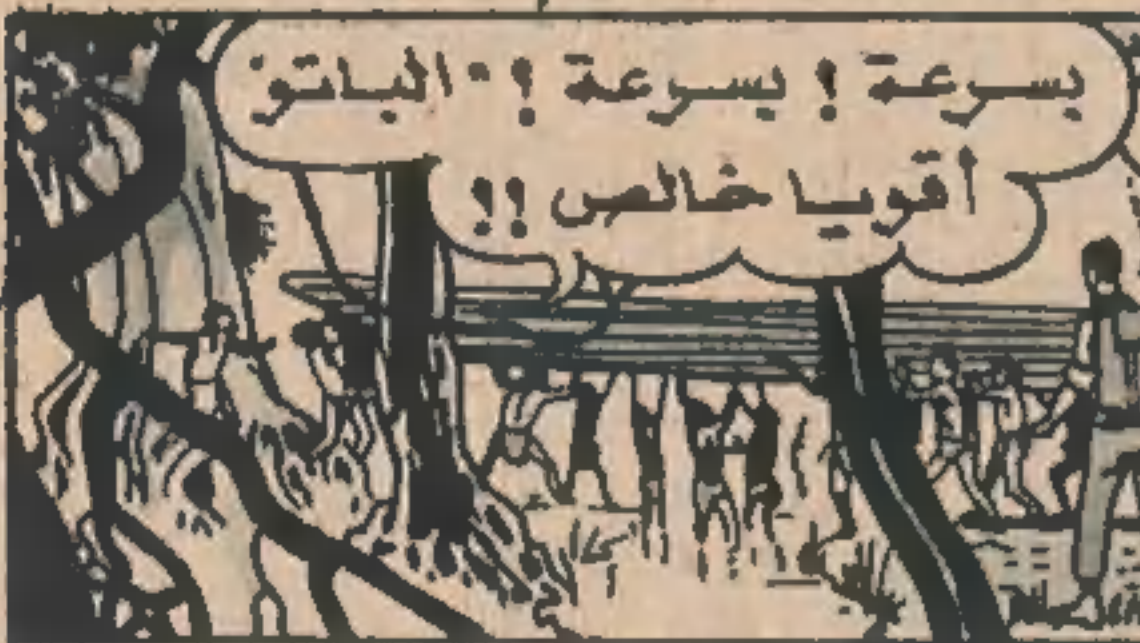 بسرعة ! بسرعة ! . الباتو
أقويا خالص !!